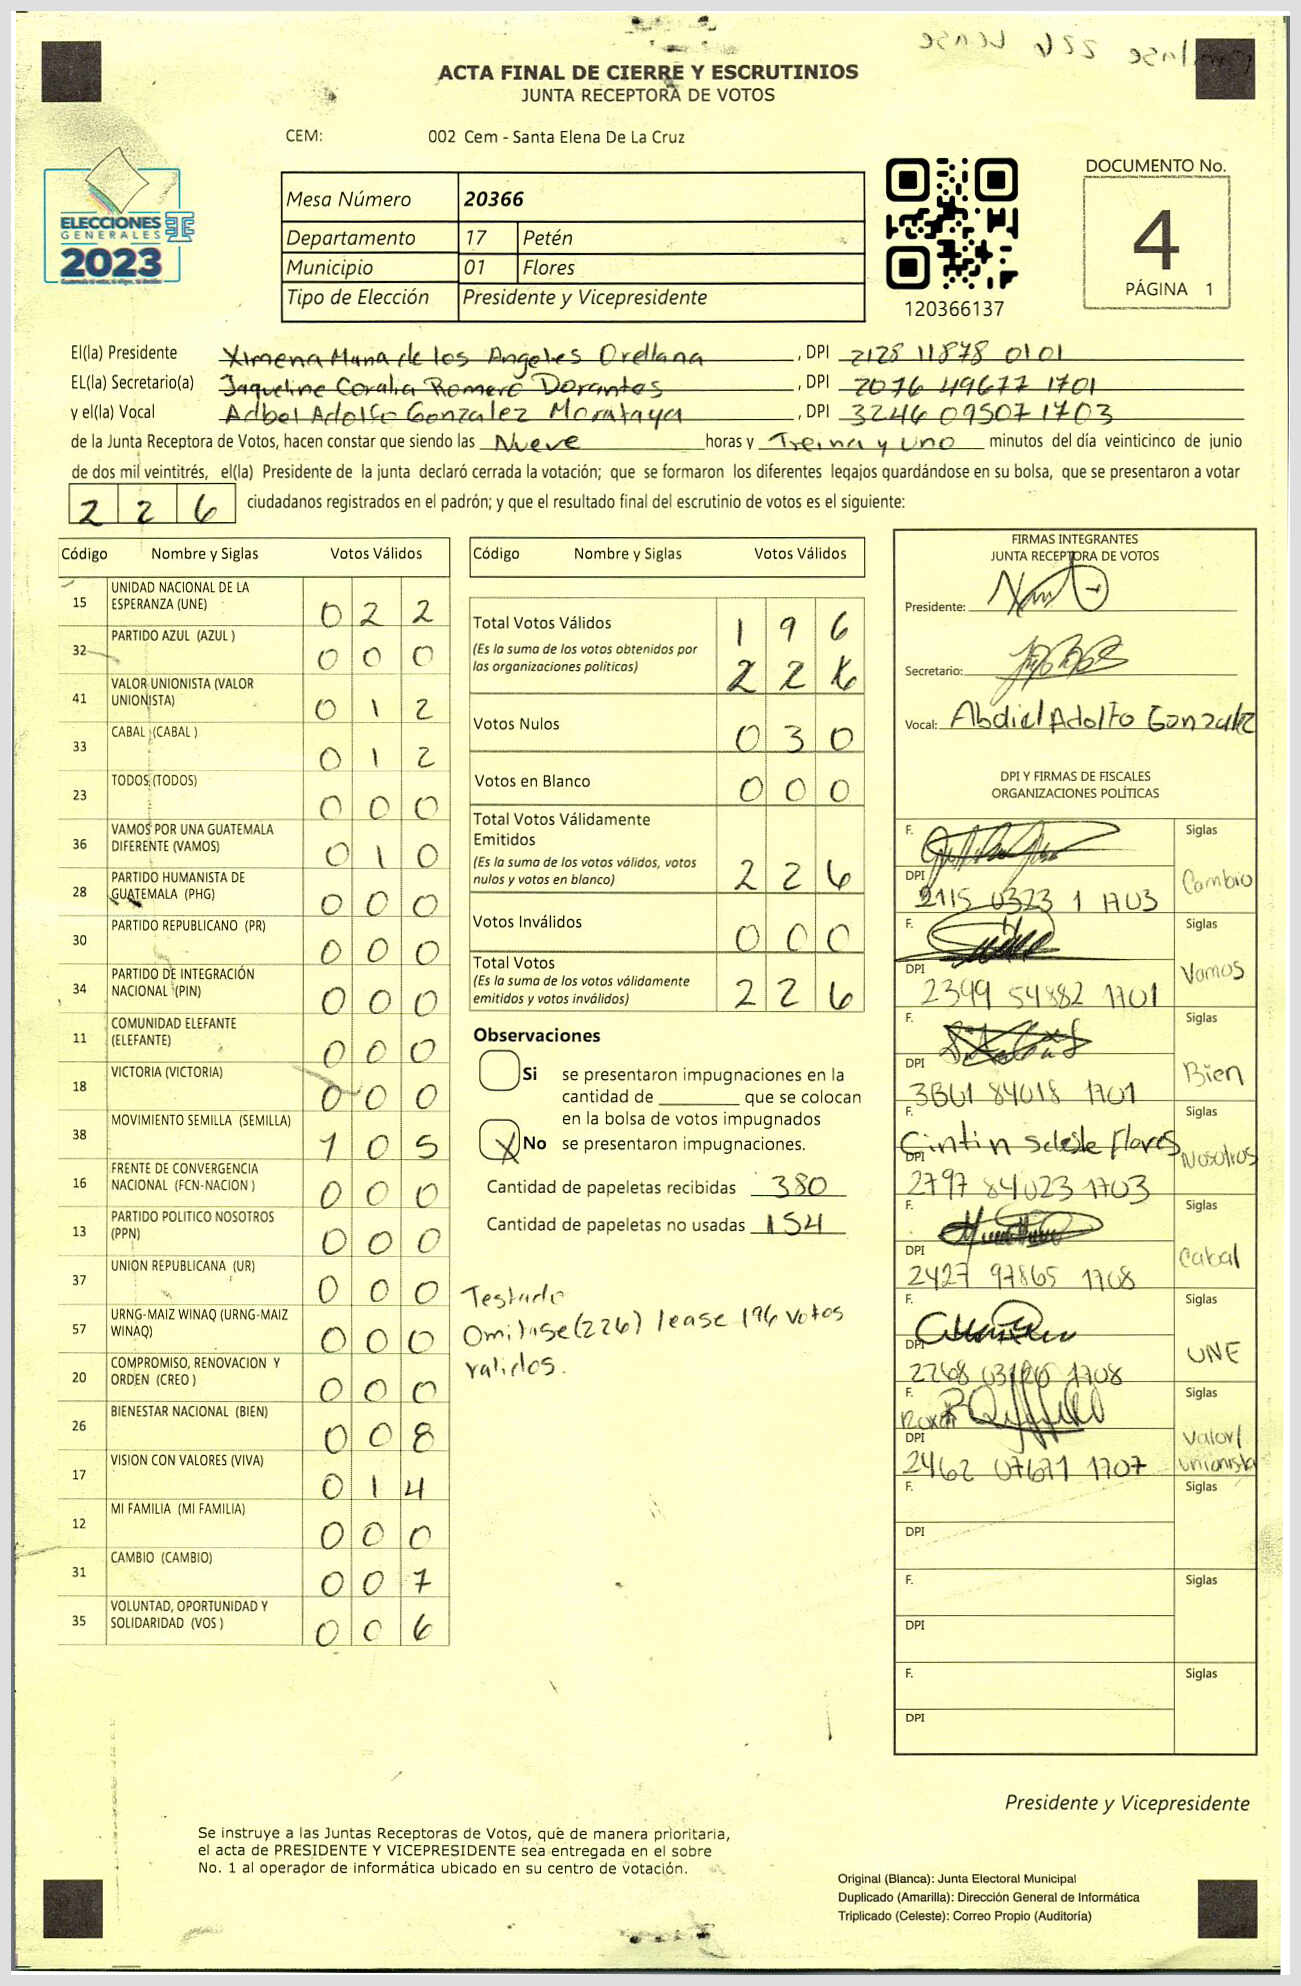 ACTA FINAL DE CIERRE Y ESCRUTINIOS
JUNTA RECEPTORA DE VOTOS
CEM: 002 Cem - Santa Elena De La Cruz
ELECCIONES
GENERALES
2023
Mesa Número 20366
Departamento 17 Petén
Municipio 01 Flores
Tipo de Elección Presidente y Vicepresidente
120366137
DOCUMENTO No.
4
PÁGINA 1
El(la) Presidente Ximena Maria de los Angeles Orellana, DPI 2128 11878 0101
EL(la) Secretario(a) Jaqueline Coralia Romero Dorantes, DPI 2076 49677 1701
y el(la) Vocal Adbel Adolfo Gonzalez Morataya, DPI 3246 09507 1703
de la Junta Receptora de Votos, hacen constar que siendo las Nueve horas y Treina y uno minutos del día veinticinco de junio
de dos mil veintitrés, el(la) Presidente de la junta declaró cerrada la votación; que se formaron los diferentes legajos guardándose en su bolsa, que se presentaron a votar
2 2 6 ciudadanos registrados en el padrón; y que el resultado final del escrutinio de votos es el siguiente:
Código Nombre y Siglas Votos Válidos
15 UNIDAD NACIONAL DE LA ESPERANZA (UNE) 0 2 2
32 PARTIDO AZUL (AZUL ) 0 0 0
41 VALOR UNIONISTA (VALOR UNIONISTA) 0 1 2
33 CABAL (CABAL ) 0 1 2
23 TODOS (TODOS) 0 0 0
36 VAMOS POR UNA GUATEMALA DIFERENTE (VAMOS) 0 1 0
28 PARTIDO HUMANISTA DE GUATEMALA (PHG) 0 0 0
30 PARTIDO REPUBLICANO (PR) 0 0 0
34 PARTIDO DE INTEGRACIÓN NACIONAL (PIN) 0 0 0
11 COMUNIDAD ELEFANTE (ELEFANTE) 0 0 0
18 VICTORIA (VICTORIA) 0 0 0
38 MOVIMIENTO SEMILLA (SEMILLA) 1 0 5
16 FRENTE DE CONVERGENCIA NACIONAL (FCN-NACION ) 0 0 0
13 PARTIDO POLITICO NOSOTROS (PPN) 0 0 0
37 UNION REPUBLICANA (UR) 0 0 0
57 URNG-MAIZ WINAQ (URNG-MAIZ WINAQ) 0 0 0
20 COMPROMISO, RENOVACION Y ORDEN (CREO ) 0 0 0
26 BIENESTAR NACIONAL (BIEN) 0 0 8
17 VISION CON VALORES (VIVA) 0 1 4
12 MI FAMILIA (MI FAMILIA) 0 0 0
31 CAMBIO (CAMBIO) 0 0 7
35 VOLUNTAD, OPORTUNIDAD Y SOLIDARIDAD (VOS ) 0 0 6
Código Nombre y Siglas Votos Válidos
Total Votos Válidos 1 9 6
(Es la suma de los votos obtenidos por
las organizaciones políticas) 2 2 6
Votos Nulos 0 3 0
Votos en Blanco 0 0 0
Total Votos Válidamente
Emitidos
(Es la suma de los votos válidos, votos
nulos y votos en blanco) 2 2 6
Votos Inválidos 0 0 0
Total Votos
(Es la suma de los votos válidamente
emitidos y votos inválidos) 2 2 6
Observaciones
Si se presentaron impugnaciones en la
cantidad de ________ que se colocan
en la bolsa de votos impugnados
X No se presentaron impugnaciones.
Cantidad de papeletas recibidas 380
Cantidad de papeletas no usadas 154
Testado
Omitase (226) lease 196 votos
validos.
FIRMAS INTEGRANTES
JUNTA RECEPTORA DE VOTOS
Presidente:
Secretario:
Vocal: Abdiel Adolfo Gonzalez
DPI Y FIRMAS DE FISCALES
ORGANIZACIONES POLÍTICAS
F. Siglas
DPI 2115 0323 1 1703 Cambio
F. Siglas
DPI 2399 54882 1701 Vamos
F. Siglas
DPI 84018 1701 Bien
F. Cintin seleste flores Siglas
DPI 2797 84023 1703 Nosotros
F. Siglas
DPI 2427 97865 1708 Cabal
F. Siglas
DPI 2268 1708 UNE
F. Siglas
DPI 2462 07671 1707 Valor/ unionista
F. Siglas
DPI
F. Siglas
DPI
F. Siglas
DPI
Presidente y Vicepresidente
Se instruye a las Juntas Receptoras de Votos, que de manera prioritaria,
el acta de PRESIDENTE Y VICEPRESIDENTE sea entregada en el sobre
No. 1 al operador de informática ubicado en su centro de votación.
Original (Blanca): Junta Electoral Municipal
Duplicado (Amarilla): Dirección General de Informática
Triplicado (Celeste): Correo Propio (Auditoría)